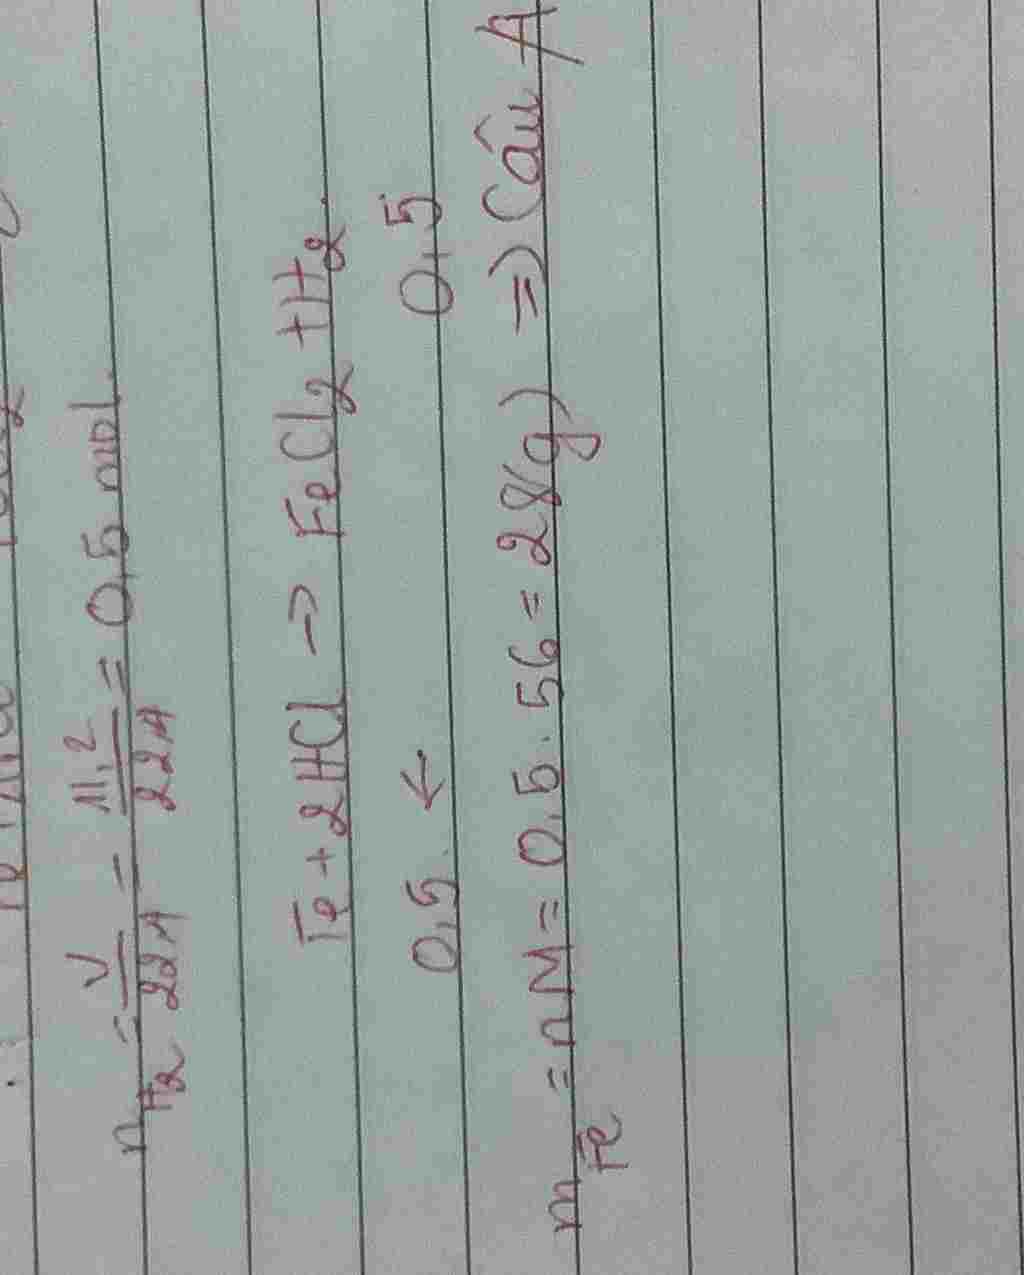 n_H2 = V/22,4 = 11,2/22,4 = 0,5 mol.
Fe + 2HCl -> FeCl2 + H2.
0,5 ← 0,5
m_Fe = nM = 0,5 . 56 = 28(g) => Câu A